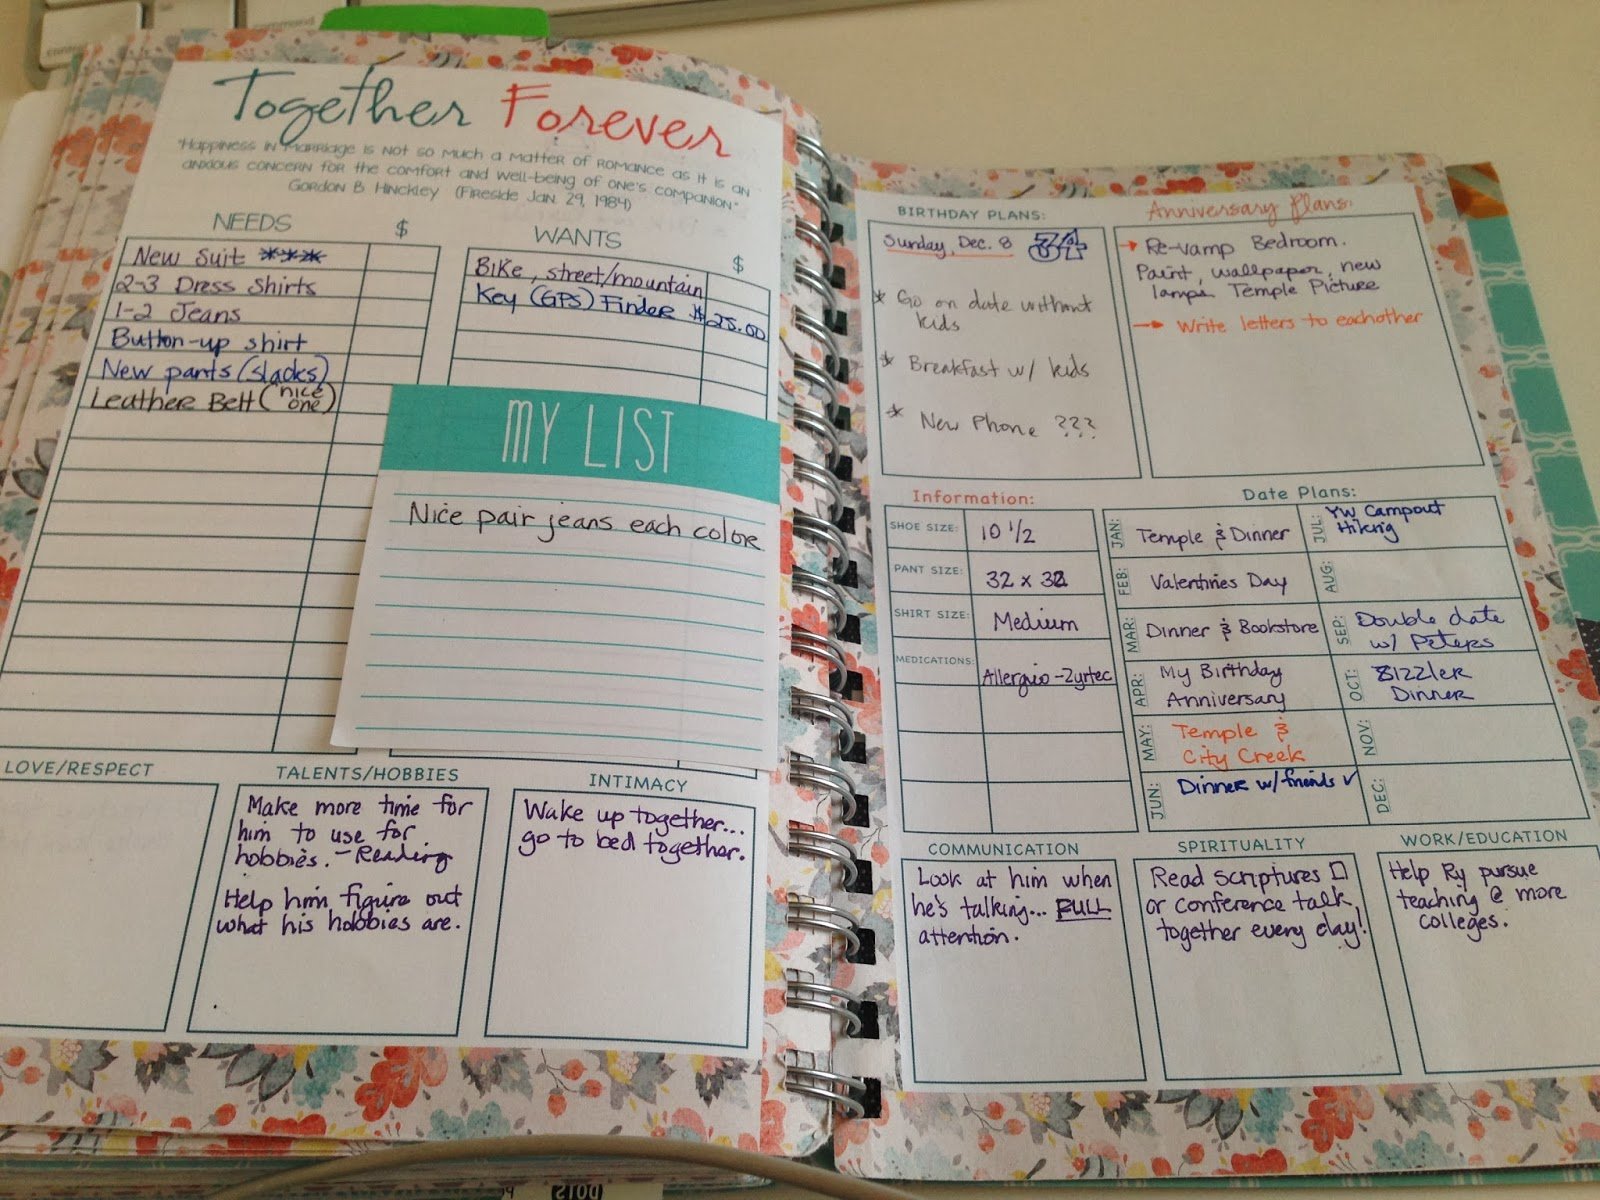 command
Together Forever
"Happiness in marriage is not so much a matter of romance as it is an
anxious concern for the comfort and well-being of one's companion"
Gordon B Hinckley (Fireside Jan. 29, 1984)
NEEDS $
New Suit ***
2-3 Dress Shirts
1-2 Jeans
Button-up shirt
New pants (slacks)
Leather Belt (nice one)
WANTS $
Bike, street/mountain
Key (GPS) Finder $25.00
MY LIST
Nice pair jeans each color
LOVE/RESPECT
TALENTS/HOBBIES
Make more time for
him to use for
hobbies. - Reading
Help him figure out
what his hobbies are.
INTIMACY
Wake up together...
go to bed together.
BIRTHDAY PLANS:
Sunday, Dec. 8 34
* Go on date without
kids
* Breakfast w/ kids
* New Phone ???
Anniversary Plans:
→ Re-vamp Bedroom.
Paint, wallpaper, new
lamps Temple Picture
→ Write letters to eachother
Information:
SHOE SIZE: 10 1/2
PANT SIZE: 32 x 32
SHIRT SIZE: Medium
MEDICATIONS: -Zyrtec
Date Plans:
JAN: Temple & Dinner
FEB: Valentines Day
MAR: Dinner & Bookstore
APR: My Birthday
Anniversary
MAY: Temple &
City Creek
JUN: Dinner w/friends ✓
JUL: YW Campout
Hiking
AUG:
SEP: Double date
w/ Peters
OCT: Sizzler
Dinner
NOV:
DEC:
COMMUNICATION
Look at him when
he's talking... FULL
attention.
SPIRITUALITY
Read scriptures
or conference talk
together every day!
WORK/EDUCATION
Help Ry pursue
teaching @ more
colleges.